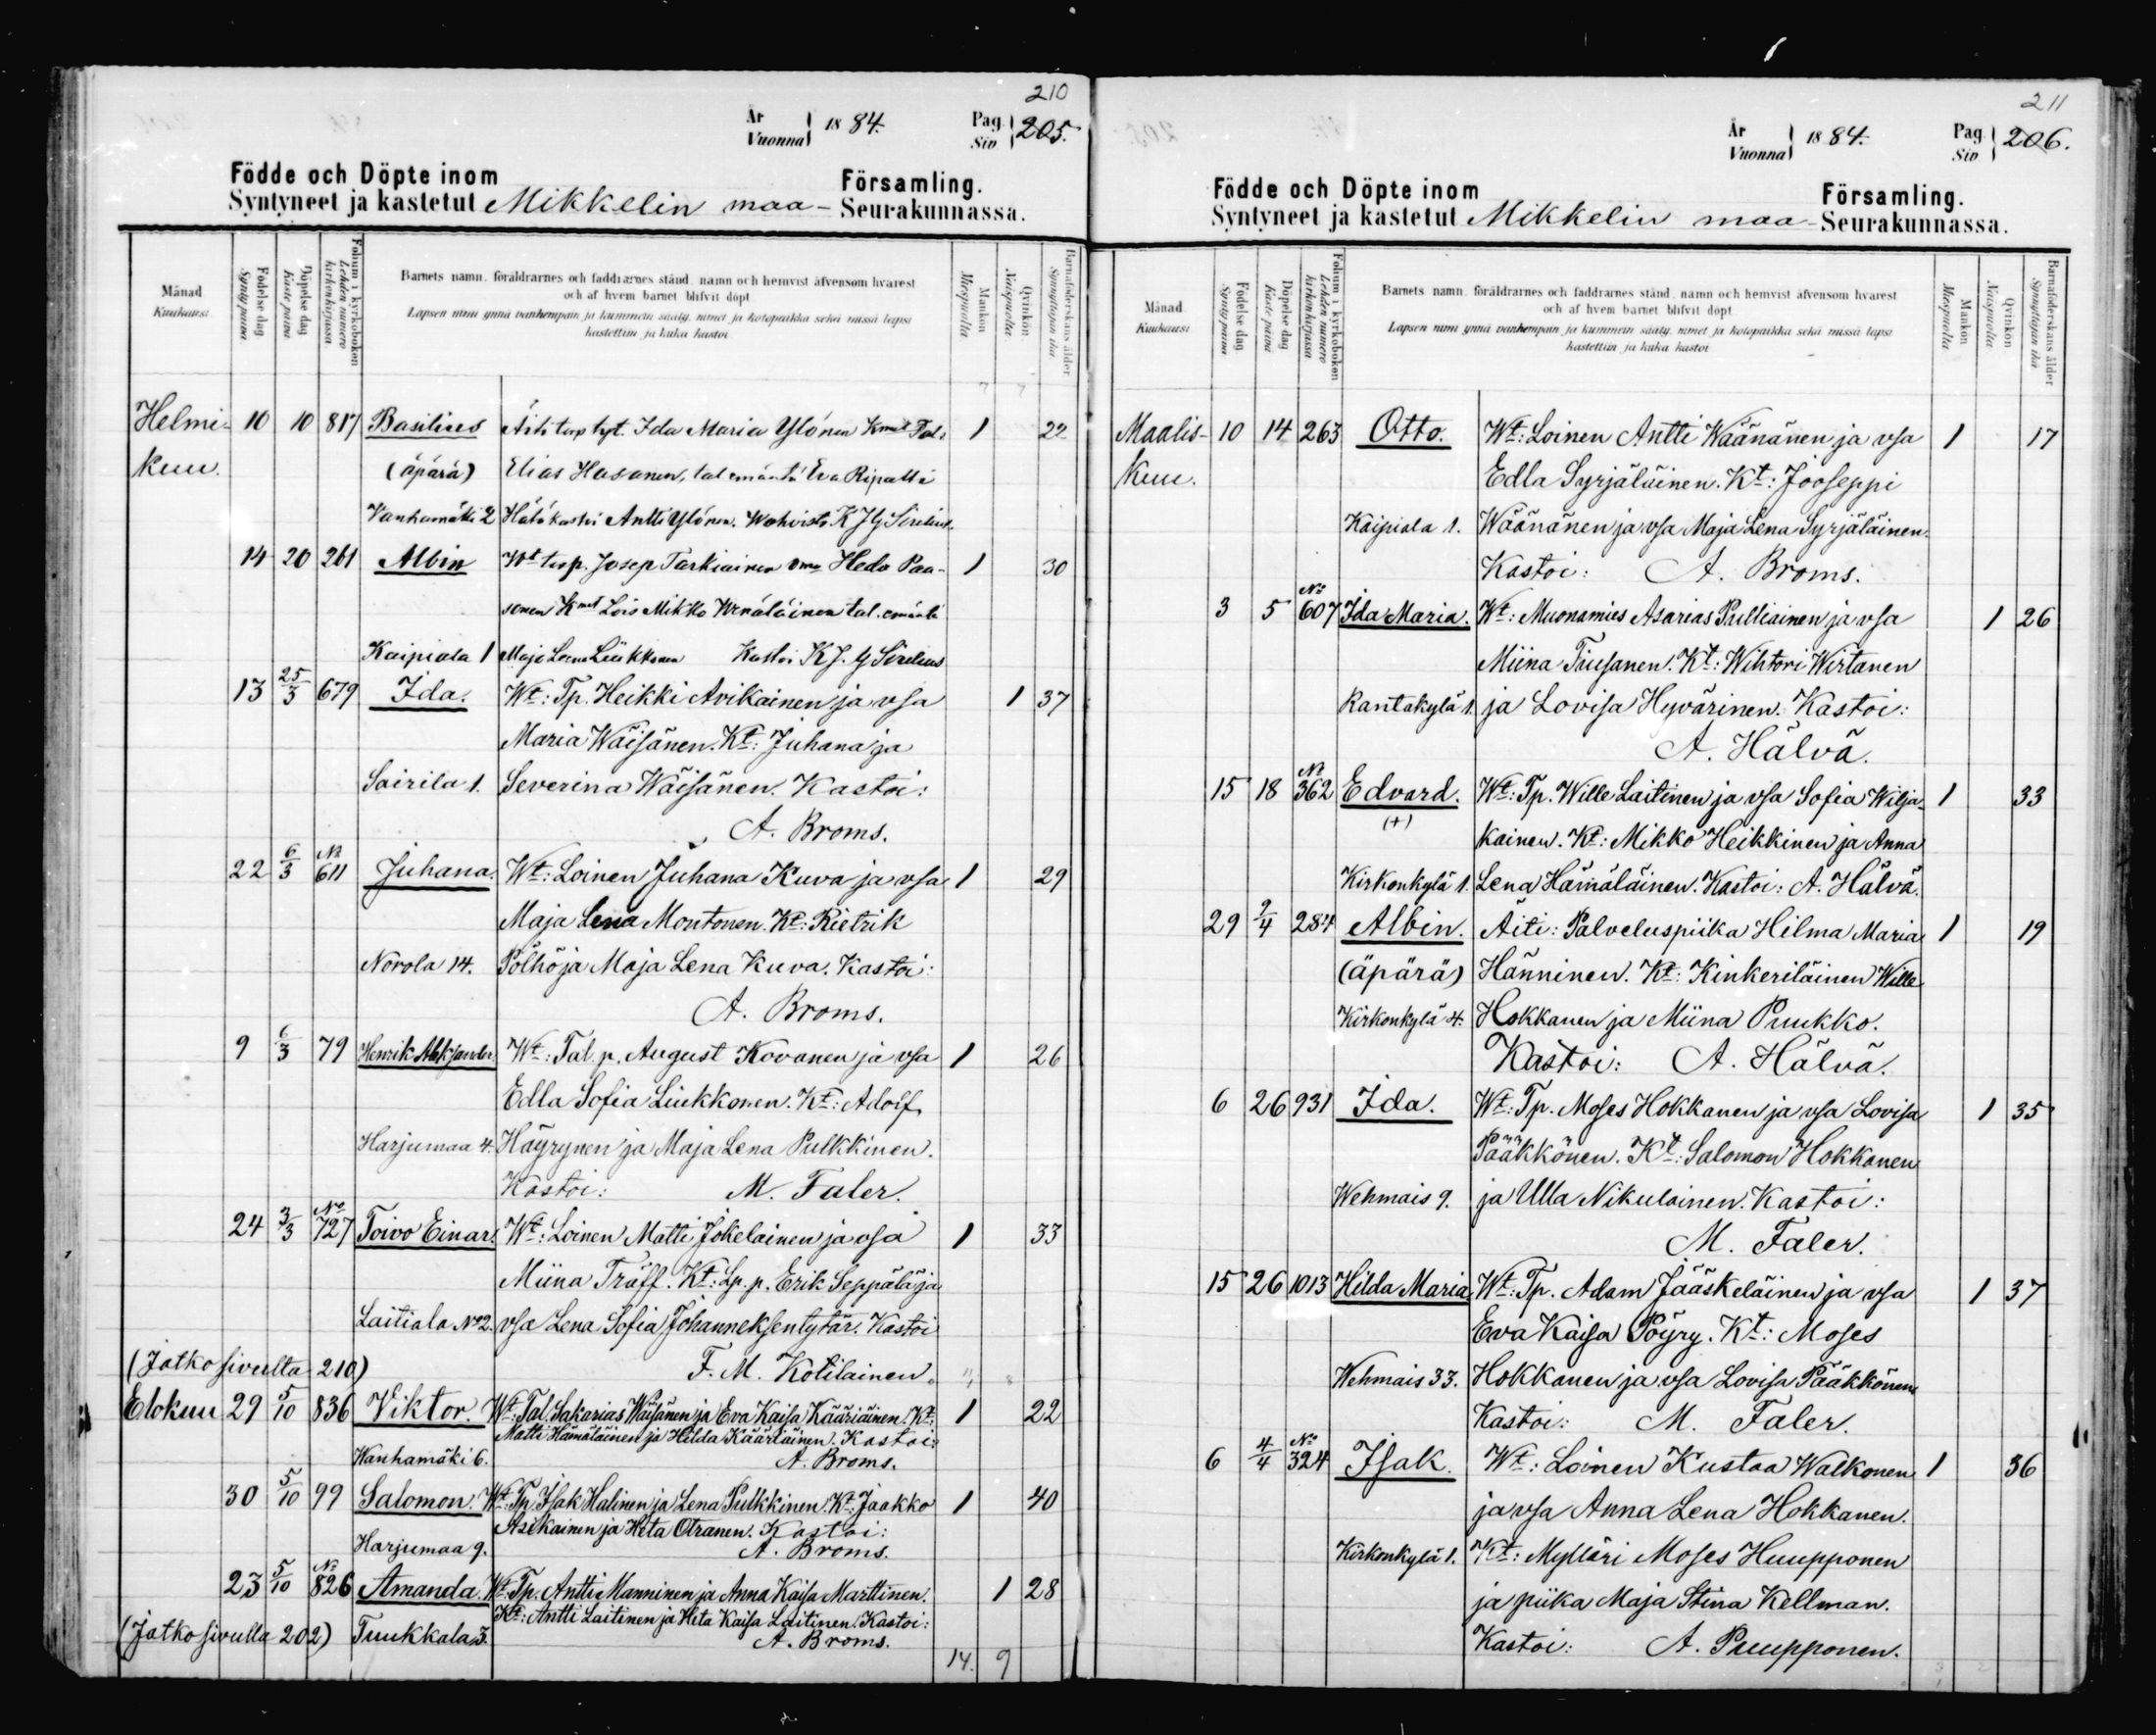 210
År
Vuonna 1884.
Pag.
Siv 205.
Födde och Döpte inom Församling.
Syntyneet ja kastetut Mikkelin maa- Seurakunnassa.
Månad
Kuukausi
Födelse dag
Syntypäivä
Döpelse dag
Kaste päivä
Folium i kyrkoboken
Lehden numero kirkonkirjassa
Barnets namn, föräldrarnes och faddrarnes stånd, namn och hemvist äfvensom hvarest
och af hvem barnet blifvit döpt
Lapsen nimi ynnä vanhempain ja kummein sääty, nimet ja kotopaikka sekä missä lapsi
kastettiin ja kuka kastoi
Mankön
Miespuolta
Qvinkön
Naispuolta
Barnaföderskans ålder
Synnyttäjän ikä
Helmi- 10 10 817 Basilius Äiti torp tyt. Ida Maria Ylönen Kmit Tal. 1 22
kuu. (äpärä) Elias Hasanen, tal emäntä Eva Ripatti
Vanhamäki 2 Hätäkastoi Antti Ylönen. Wahvisti K J G Sirelius
14 20 261 Albin Wt torp. Josep Tarkiainen vmo Heda Paa- 1 30
sonen Kmit Lois Mikko Wenäläinen tal. emäntä
Kaipiala 1 Maja Leena Liukkonen Kastoi K J. G Sirelius
13 25/3 679 Ida. Wt: Tp. Heikki Arikainen ja vsa 1 37
Maria Wäisänen. Kt: Juhana ja
Sairila 1. Severina Wäisänen. Kastoi:
A. Broms.
22 6/3 No 611 Juhana. Wt: Loinen Juhana Kuva ja vsa 1 29
Maja Lena Montonen. Kt: Rietrik
Norola 14. Pölhö ja Maja Lena Kuva. Kastoi:
A. Broms.
9 6/3 79 Henrik Aleksander. Wt: Tal. p. August Kovanen ja vsa 1 26
Edla Sofia Liukkonen. Kt: Adolf
Harjumaa 4. Häyrynen ja Maja Lena Pulkkinen.
Kastoi: M. Faler.
24 3/3 No 727 Toivo Einar. Wt: Loinen Matti Jokelainen ja vsa 1 33
Miina Träff. Kt: Lp. p. Erik Seppälä ja
Laitiala No 2. vsa Lena Sofia Johanneksentytär. Kastoi
(Jatko sivulta 210) F. M. Kotilainen.
Elokuu 29 5/10 836 Viktor. Wt: Tal. Sakarias Wäisänen ja Eva Kaisa Kääriäinen. Kt: 1 22
Matti Hämäläinen ja Hilda Kääriäinen. Kastoi:
Wanhamäki 6. A. Broms.
30 5/10 99 Salomon. Wt: Tp. Isak Halinen ja Lena Pulkkinen. Kt: Jaakko 1 40
Asikainen ja Heta Otranen. Kastoi:
Harjumaa 9. A. Broms.
23 5/10 No 826 Amanda. Wt: Tp. Antti Manninen ja Anna Kaisa Marttinen. 1 28
Kt: Antti Laitinen ja Heta Kaisa Laitinen. Kastoi:
(Jatko sivulla 202) Tuukkala 3. A. Broms.
14. 9
211
År
Vuonna 1884.
Pag.
Siv 206.
Födde och Döpte inom Församling.
Syntyneet ja kastetut Mikkelin maa- Seurakunnassa.
Månad
Kuukausi
Födelse dag
Syntypäivä
Döpelse dag
Kaste päivä
Folium i kyrkoboken
Lehden numero kirkonkirjassa
Barnets namn, föräldrarnes och faddrarnes stånd, namn och hemvist äfvensom hvarest
och af hvem barnet blifvit döpt
Lapsen nimi ynnä vanhempain ja kummein sääty, nimet ja kotopaikka sekä missä lapsi
kastettiin ja kuka kastoi
Mankön
Miespuolta
Qvinkön
Naispuolta
Barnaföderskans ålder
Synnyttäjän ikä
Maalis- 10 14 263 Otto. Wt: Loinen Antti Wäänänen ja vsa 1 17
kuu. Edla Syrjäläinen. Kt: Jooseppi
Kaipiala 1. Wäänänen ja vsa Maja Lena Syrjäläinen.
Kastoi: A. Broms.
3 5 No 607 Ida Maria. Wt: Muonamies Asarias Pulliainen ja vsa 1 26
Miina Tiusanen. Kt: Wihtori Wirtanen
Rantakylä 1. ja Lovisa Hyvärinen. Kastoi:
A. Hälvä.
15 18 No 362 Edvard. Wt: Tp. Wille Laitinen ja vsa Sofia Wilja- 1 33
(+) kainen. Kt: Mikko Heikkinen ja Anna
Kirkonkylä 1. Lena Hämäläinen. Kastoi: A. Hälvä.
29 9/4 284 Albin. Äiti: Palveluspiika Hilma Maria 1 19
(äpärä) Hänninen. Kt: Kinkeriläinen Wille
Kirkonkylä 4. Hokkanen ja Miina Puukko.
Kastoi: A. Hälvä.
6 26 931 Ida. Wt: Tp. Moses Hokkanen ja vsa Lovisa 1 35
Pääkkönen. Kt: Salomon Hokkanen
Wehmais 9. ja Ulla Nikulainen. Kastoi:
M. Faler.
15 26 1013 Hilda Maria Wt: Tp. Adam Jääskeläinen ja vsa 1 37
Eva Kaisa Pöyry. Kt: Moses
Wehmais 33. Hokkanen ja vsa Lovisa Pääkkönen
Kastoi: M. Faler.
6 4/4 No 324 Isak. Wt: Loinen Kustaa Walkonen 1 36
ja vsa Anna Lena Hokkanen.
Kirkonkylä 1. Kt: Mylläri Moses Huupponen
ja piika Maja Stina Kellman.
Kastoi: A. Puupponen.